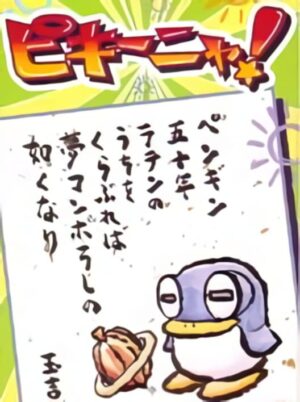 ピキーニャ!
ペンギン
五十年
ラテンの
うちを
くらぶれば
夢マンボラしの
如くなり
玉吉